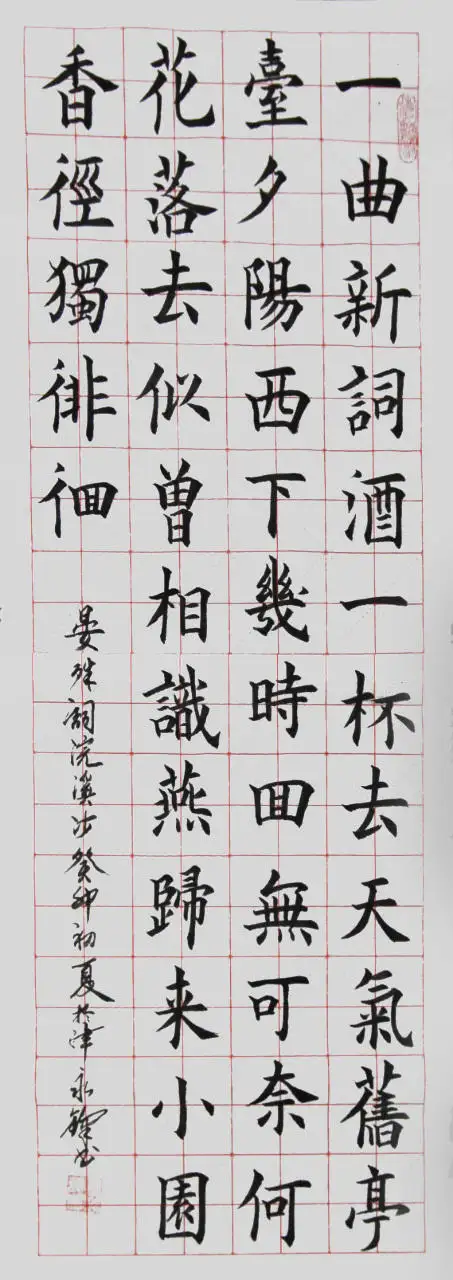 一曲新詞酒一杯去天氣舊亭
臺夕陽西下幾時回無可奈何
花落去似曾相識燕歸来小園
香徑獨徘徊
晏殊詞浣溪沙癸卯初夏於津永書